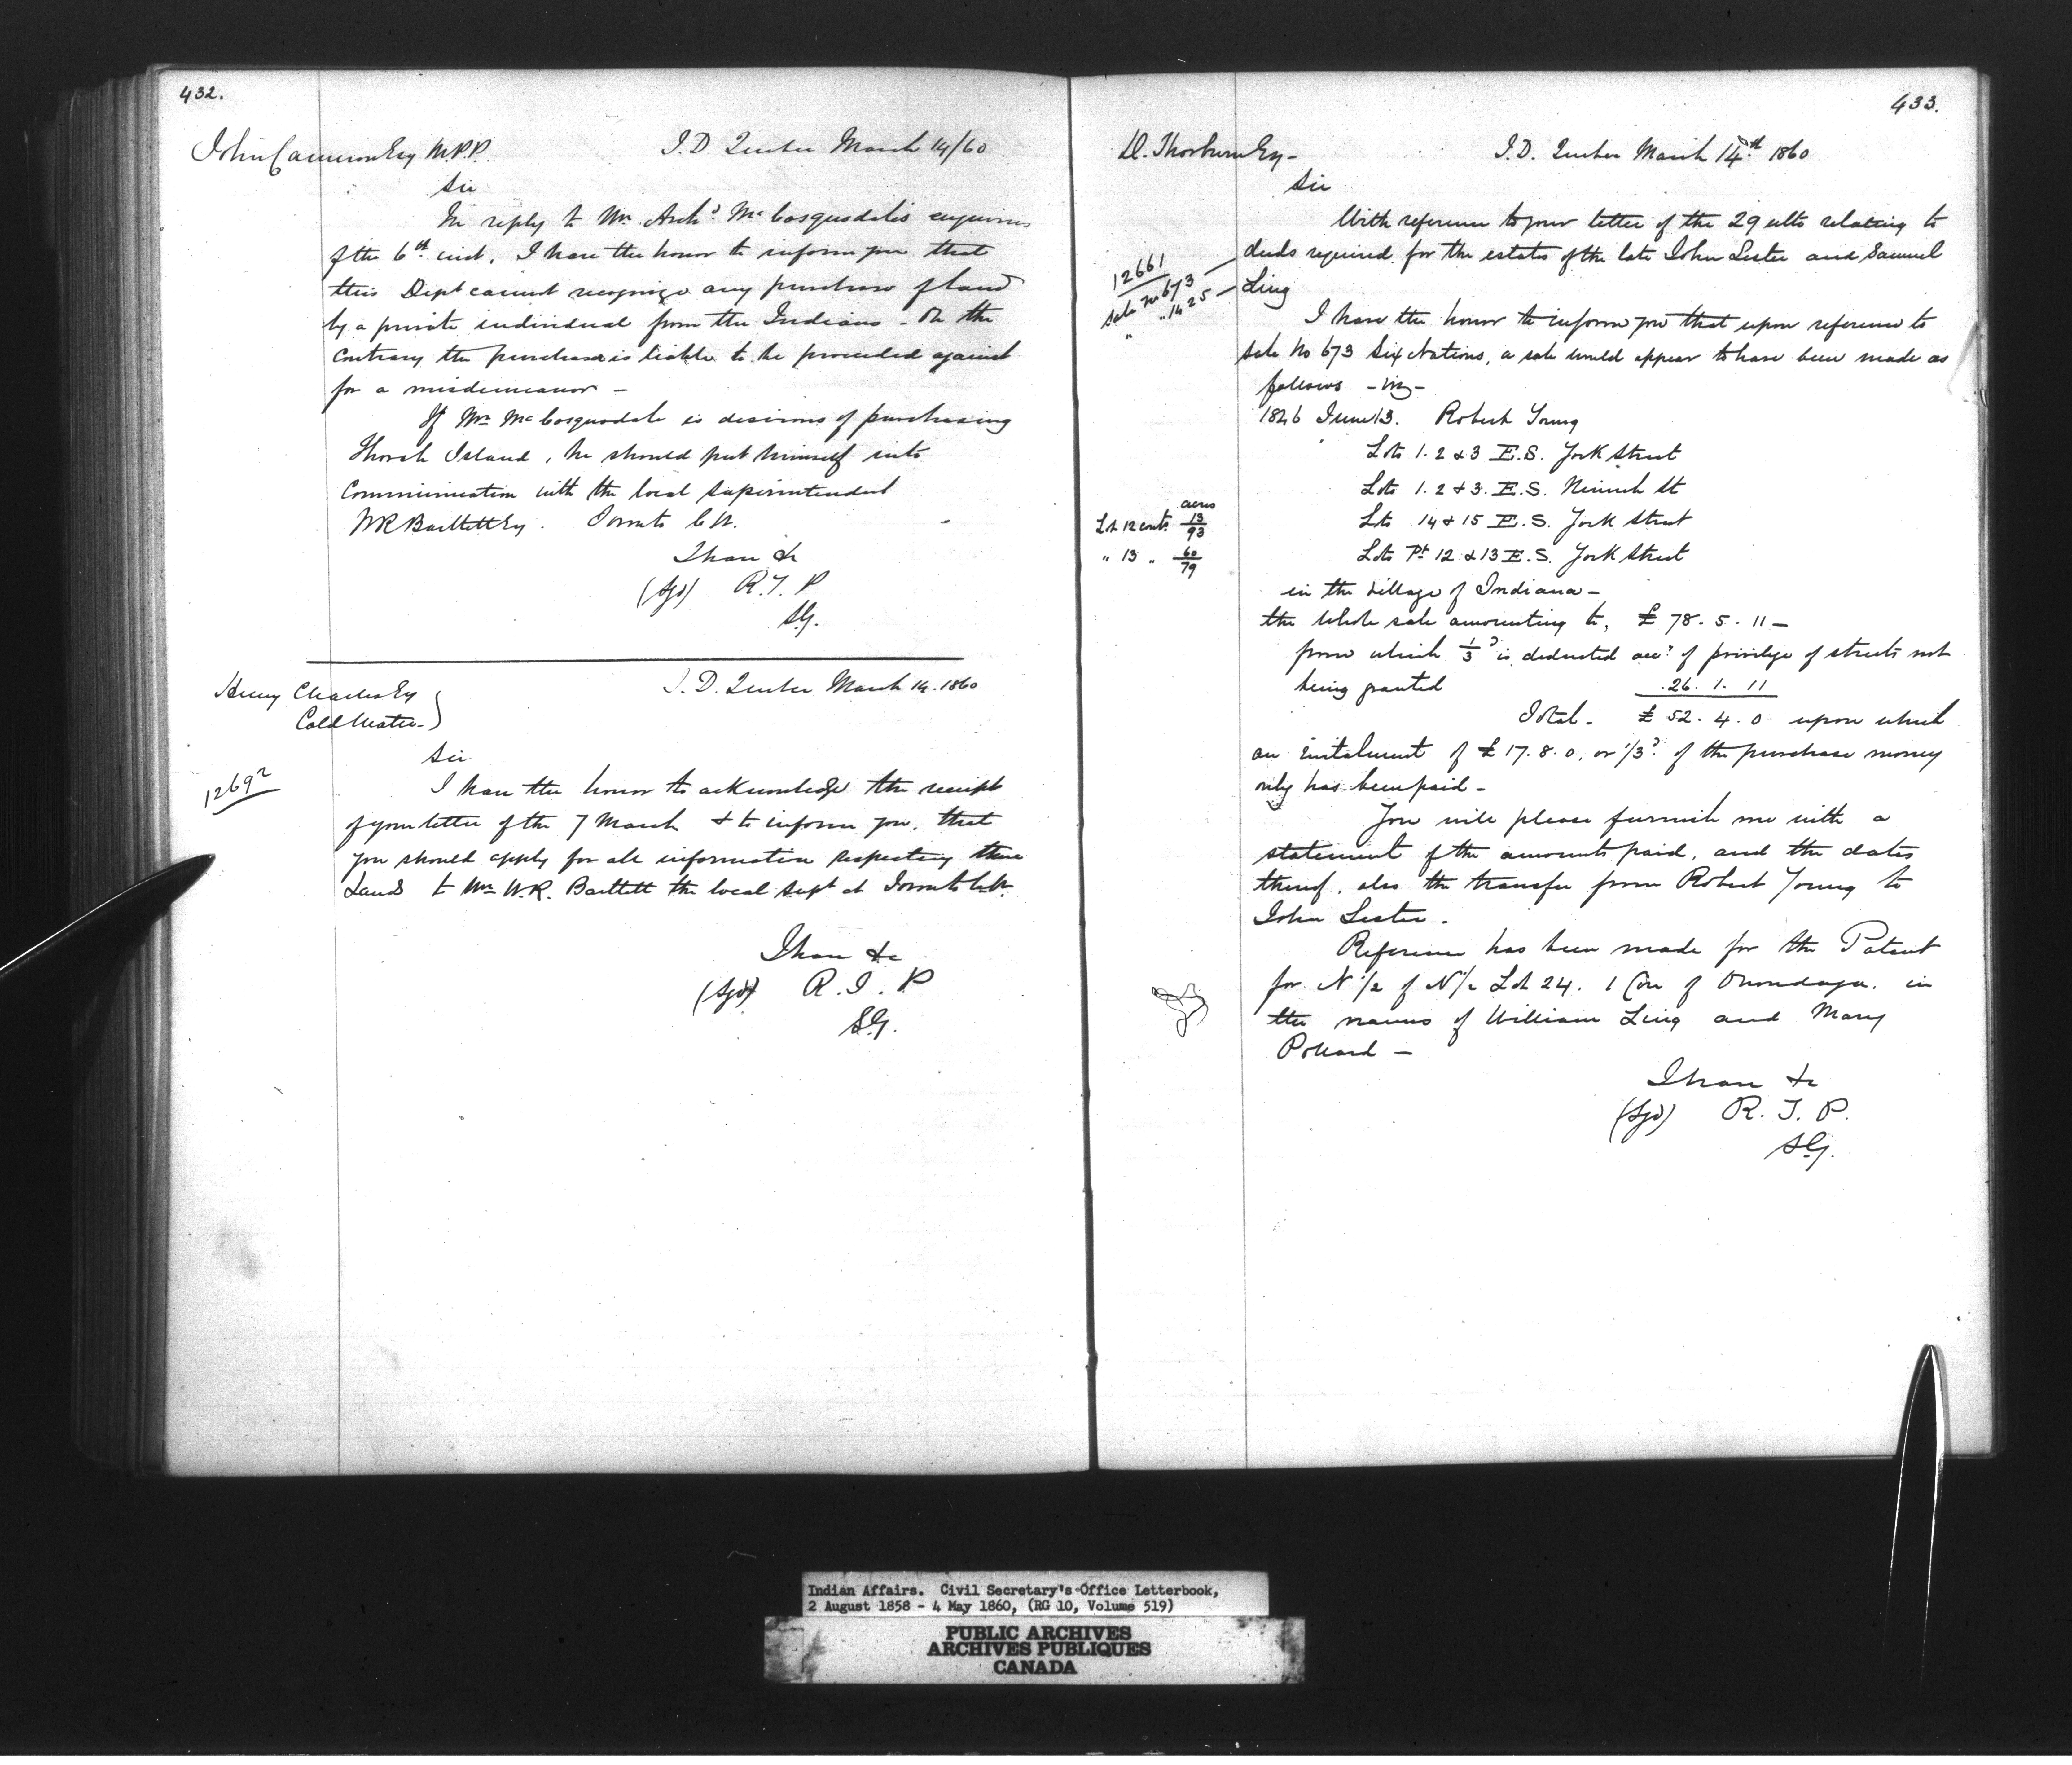 432.
John Cameron Esq M.P.P. I.D Quebec March 14/60
Sir
In reply to Mr Archd McCorquodale's enquiries
of the 6th inst. I have the honor to inform you that
this Dept cannot recognize any purchase of land
by a private individual from the Indians - On the
contrary the purchaser is liable to be proceeded against
for a misdemeanor -
If Mr McCorquodale is desirous of purchasing
Thorah Island, he should put himself into
Communication with the local Superintendent
WR Bartlett Esq. Toronto C.W.
I have &c
(Sgd) R.T.P
S.G.
Henry Charles Esq
Coldwater -
I.D. Quebec March 14. 1860
Sir
12692
I have the honor to acknowledge the receipt
of your letter of the 7 March & to inform you, that
you should apply for all information respecting these
Lands to Mr W.R. Bartlett the local Supt at Toronto C.W.
I have &c
(Sgd) R.T.P
S.G.
433.
D. Thorburn Esq - I.D. Quebec March 14th 1860
Sir
With reference to your letter of the 29 ulto relating to
deeds required for the estates of the late John Lester and Samuel
Ling
12661
Sale No 673
" " 1425
I have the honor to inform you that upon reference to
Sale No 673 Six Nations, a sale would appear to have been made as
follows - viz -
1846 June 13. Robert Young
Lots 1. 2 & 3 E.S. York Street
Lots 1. 2 & 3. E.S. St
Lots 14 & 15 E.S. York Street
Lots Pt 12 & 13 E.S. York Street
acres
Lot 12 conts. 13/93
" 13 " 60/79
in the Village of Indiana -
the whole sale amounting to, £ 78. 5. 11 -
from which 1/3d is deducted acct of privilege of streets not
being granted 26. 1. 11
Total - £ 52. 4. 0 upon which
an instalment of £ 17. 8. 0, or 1/3d of the purchase money
only has been paid -
You will please furnish me with a
statement of the amounts paid, and the dates
thereof, also the transfer from Robert Young to
John Lester.
Reference has been made for the Patent
for N 1/2 of N 1/2 Lot 24. 1 Con of Onondaga. in
the names of William Ling and Mary
Pollard -
I have &c
(Sgd) R.T.P.
S.G.
Indian Affairs. Civil Secretary's Office Letterbook,
2 August 1858 - 4 May 1860, (RG 10, Volume 519)
PUBLIC ARCHIVES
ARCHIVES PUBLIQUES
CANADA